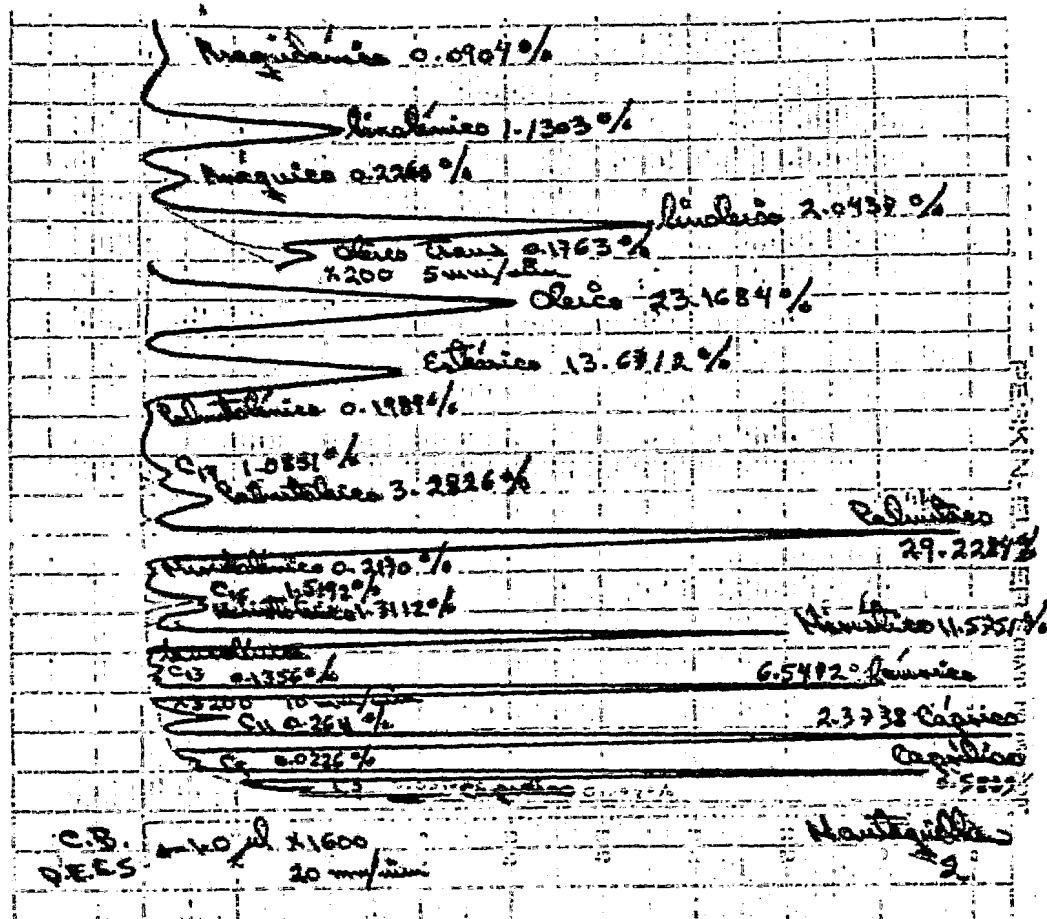 Araquidónico 0.0904%
linolénico 1.1303%
Aráquico 0.2268%
linoleico 2.0437%
Oleico trans 0.1763%
x200 5 mm/min
Oleico 23.1684%
Esteárico 13.6712%
Palmitolénico 0.1989%
C17 1.0851%
Palmitoleico 3.2826%
Palmítico
29.2284%
Miristolénico 0.2170%
C15 1.5192%
Miristoleico 1.3112%
Mirístico 11.5751%
C13 0.1356%
6.5472% laúrico
x3200 10 mm/min
C11 0.2611%
2.3738 Cáprico
C9 0.0226%
Caprílico
C.B.
Q.E.E.S
1.0 µl x1600
20 mm/min
Mantequilla
2